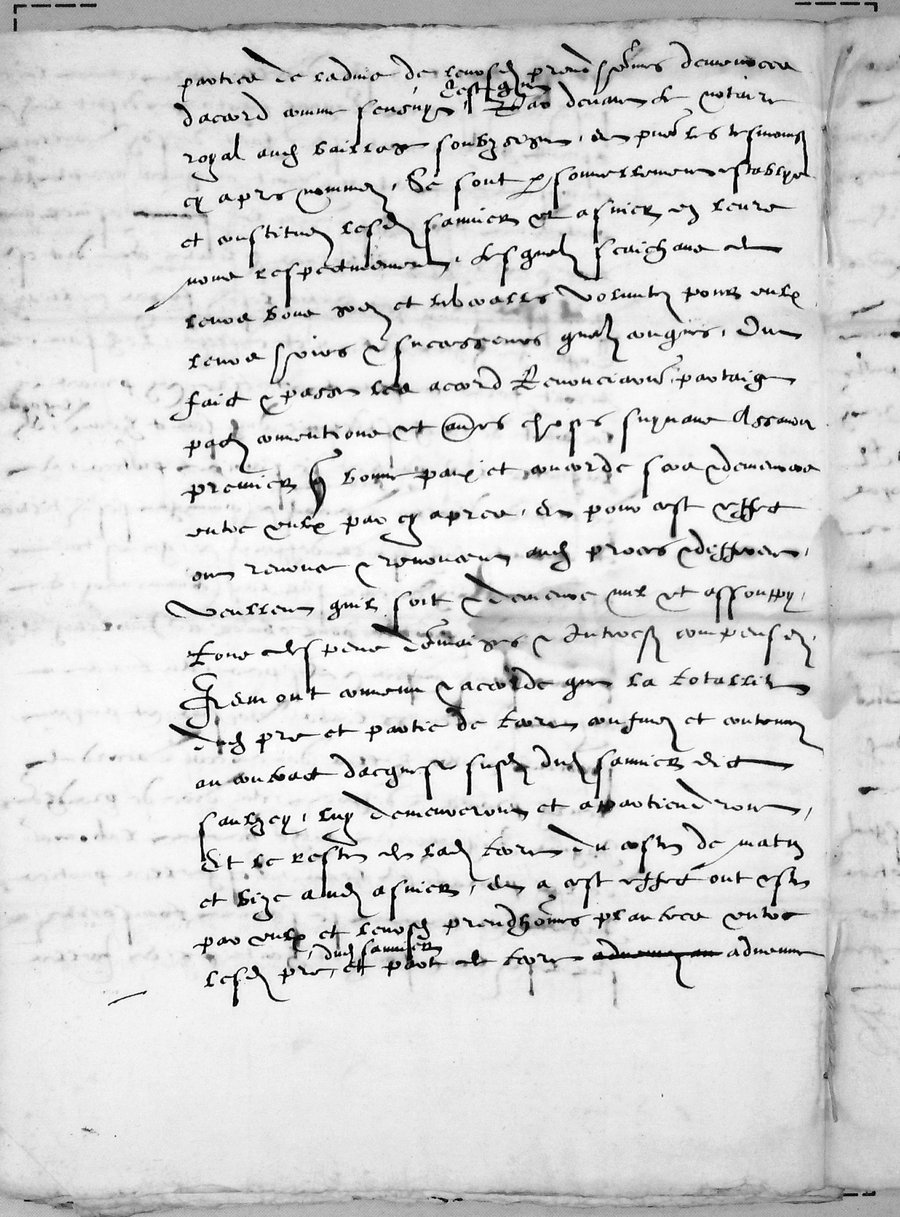 parties de ladvis de leursd prendhomes demeurees
daccord comme sensuyt, Cest que Par devant le notaire
royal aud bailliage soubzsigne, en pnce des tesmoings
cy apres nommez, Se sont psonnellement establys
et constituez lesd sannier et asnier en leurs
noms respectivement, lesquels scaichans de
leurs bons grez et liberalles voluntez pour eulx
leurs hoirs & successeurs quelzconques, Ont
faict & passe les acord Renonciaons, partaige
pactz conventions et aultres choses suyvans Assavoir
premier que bonne paix et concorde sera & demeurera
entre eulx par cy apres, en pour cest effect
ont renonce & renoncent aud proces & differen,
veullent quil soit & demeure nul et assoupy,
tous despens domaiges & Interestz compensez,
Item ont convenu & accorde que la totallite
dud pre et partie de terre confinez et contenuz
au contract dacquest susd dud sannier dit
saulzey, luy demeureront et appartiendront,
Et le reste de lad terre du coste de matin
et bize aud asnier, en a cest effect ont este
par eulx et leursd prendhomes plantees entre
lesd pre, dud sannier et part de terre advenue